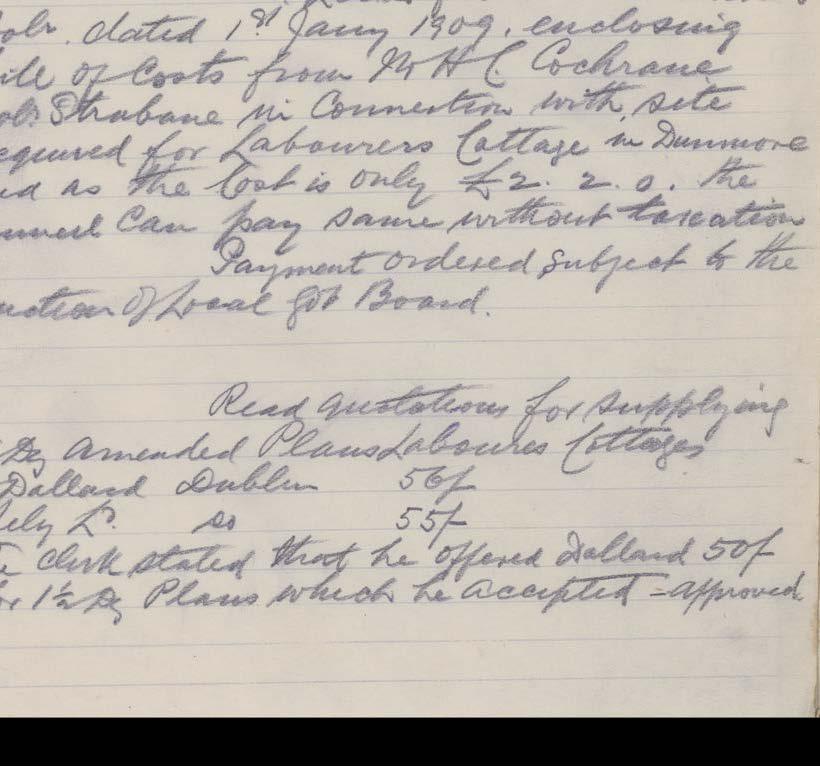 dated 1st Jany 1909. enclosing
of Costs from Mr H C. Cochrane
Strabane in Connection with site
for Labourers Cottage in Dunmore
as the Cost is only £2. 2. 0. the
can pay same without taxation
Payment ordered subject to the
of Local Govt Board.
Read quotations for supplying
Dz amended Plans Laboures Cottages
Dollard Dublin 56/-
Ld. do 55/-
Clerk stated that he offered Dollard 50/-
1½ Dz Plans which he accepted = approved.